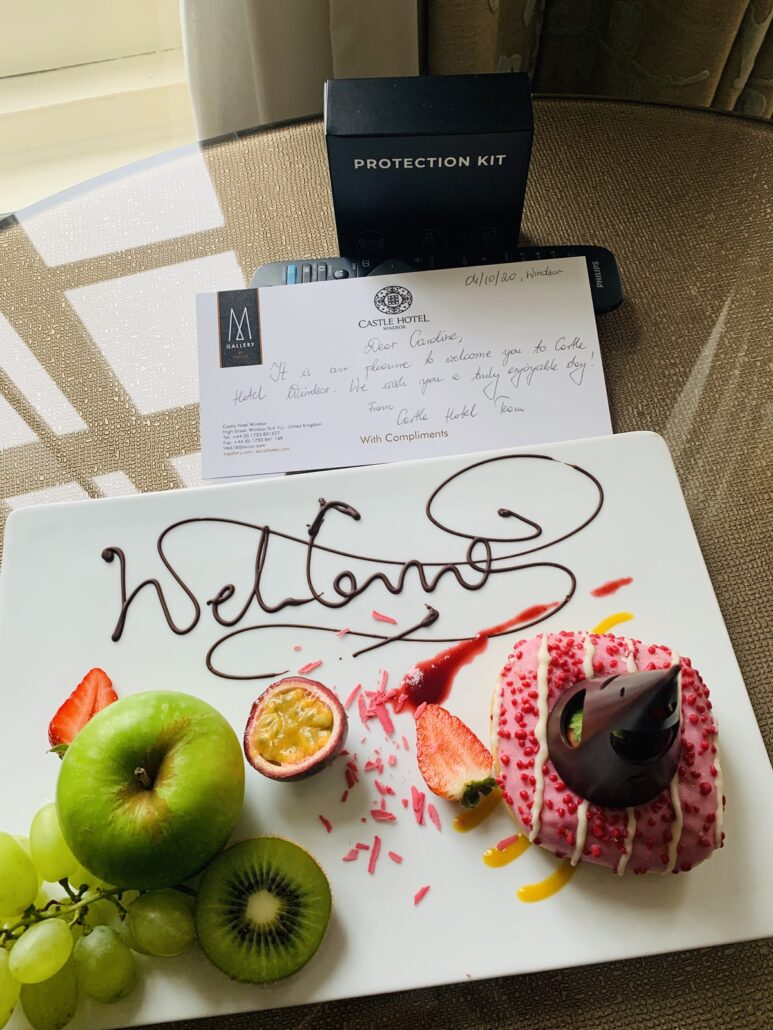 PROTECTION KIT
PHILIPS
04/10/20, Windsor
M
GALLERY
CASTLE HOTEL
WINDSOR
Dear Caroline,
It is our pleasure to welcome you to Castle
Hotel Windsor. We wish you a truly enjoyable stay!
From
Castle Hotel Team
Castle Hotel Windsor
High Street, Windsor SL4 1LJ - United Kingdom
Tel. +44 (0) 1753 851577
Fax. +44 (0) 1753 841 149
mgallery.com - accorhotels.com
With Compliments
Welcome